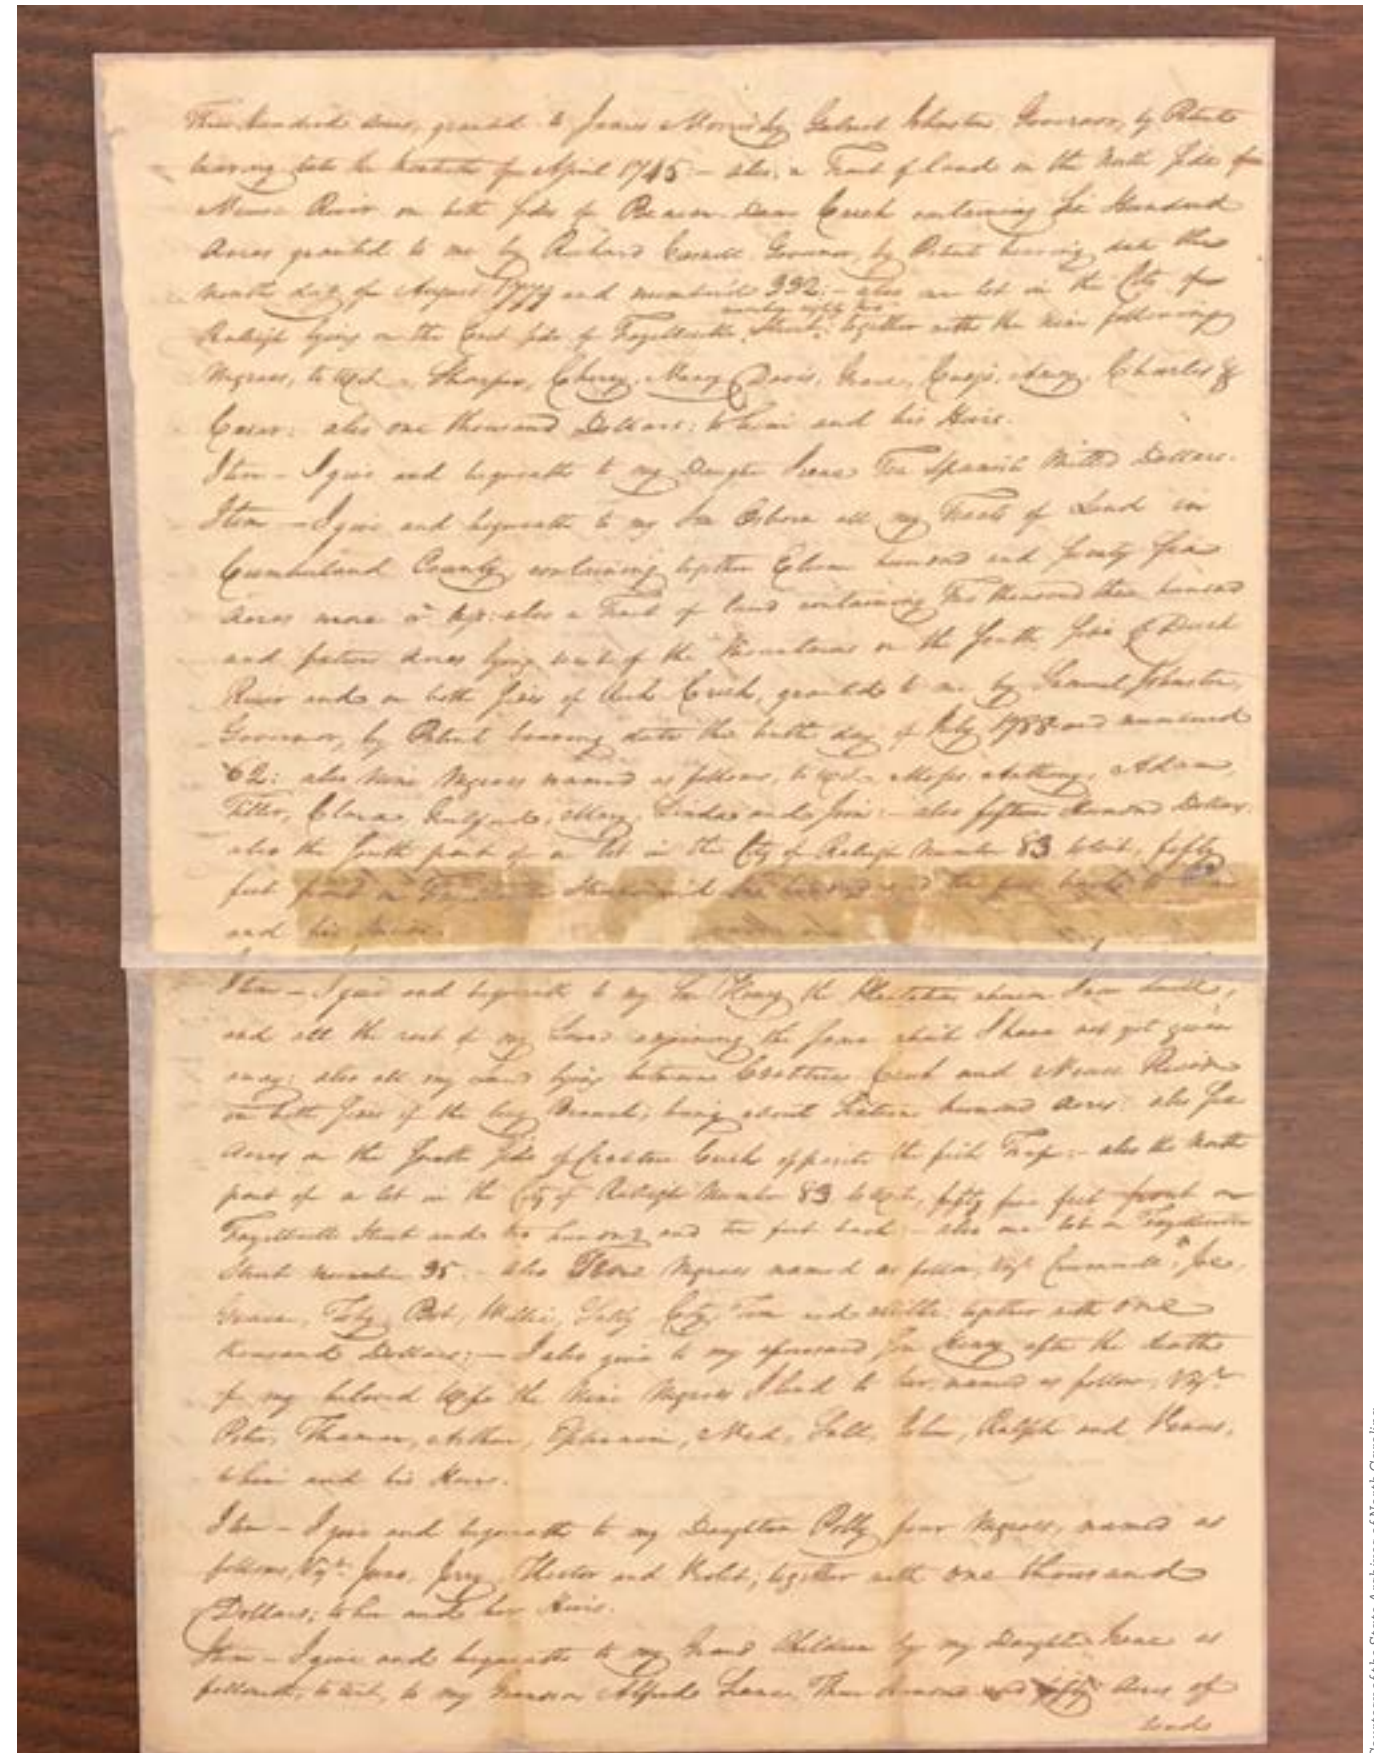 Three hundred acres, granted to James Morris by Gabriel Johnston Governor, by Patent
bearing date the April 1745 – also, a Tract of land on the North side of
Neuse River on both sides of Beaver Dam Creek containing Six Hundred
Acres granted to me by Richard Caswell Governor, by Patent bearing date the
day of August 1779 and numbered 332: – also one lot in the City of
number eighty two
Raleigh lying on the East side of Fayetteville Street; together with the nine following
Negroes, to wit, Sharper, Cherry, Mary, Davis, Grace, Amey, Charles &
Cesar: also one thousand Dollars: to him and his Heirs.
Item – I give and bequeath to my Daughter Irene Ten Spanish Milled Dollars.
Item – I give and bequeath to my Son Osborn all my Tracts of Land in
Cumberland County, containing together Eleven hundred and
Acres more or less: also a Tract of land containing Two thousand three hundred
and acres lying west of the Mountains on the South side of Duck
River and on both sides of Creek, granted to me by Samuel Johnston,
Governor, by Patent bearing date the tenth day of July 1788 and numbered
62: also Nine Negroes named as follows, to wit, Moses, Anthony, Adam,
Clara, Mary, Linda and : – also fifteen Hundred Dollars
also the South part of a lot in the City of Raleigh Number 83 to wit, fifty
feet front on Street and two hundred and ten feet back to him
and his heirs.
Item – I give and bequeath to my Son Henry the Plantation whereon I now dwell,
and all the rest of my Land adjoining the same which I have not yet given
away: also all my Land lying between Crabtree Creek and Neuse River
on both sides of the Branch; being about Sixteen hundred Acres: also five
Acres on the South side of Crabtree Creek opposite the fish Trap: – also the North
part of a lot in the City of Raleigh Number 83 to wit, fifty five feet front on
Fayetteville Street and two hundred and ten feet back – also one lot on Fayetteville
Street number 95. – also Negroes named as follow, Vizt. Joe,
Grace, Toby, Bob, Willie, Tom and : together with one
thousand Dollars: – I also give to my aforesaid Son Henry after the death
of my beloved Wife the Nine Negroes I lend to her, named as follow, Vizt.
Peter, Thamar, Arthur, Ephraim, Ned, Ralph and Venus,
to him and his Heirs.
Item – I give and bequeath to my Daughter Polly four Negroes, named as
follows, Vizt. Jerry, Hester and Violet; together with one thousand
Dollars; to her and her Heirs.
Item – I give and bequeath to my Grand Children by my Daughter Irene as
followeth, to wit, to my Grandson Alfred Lane, Three hundred and fifty Acres of
Land
Courtesy of the State Archives of North Carolina